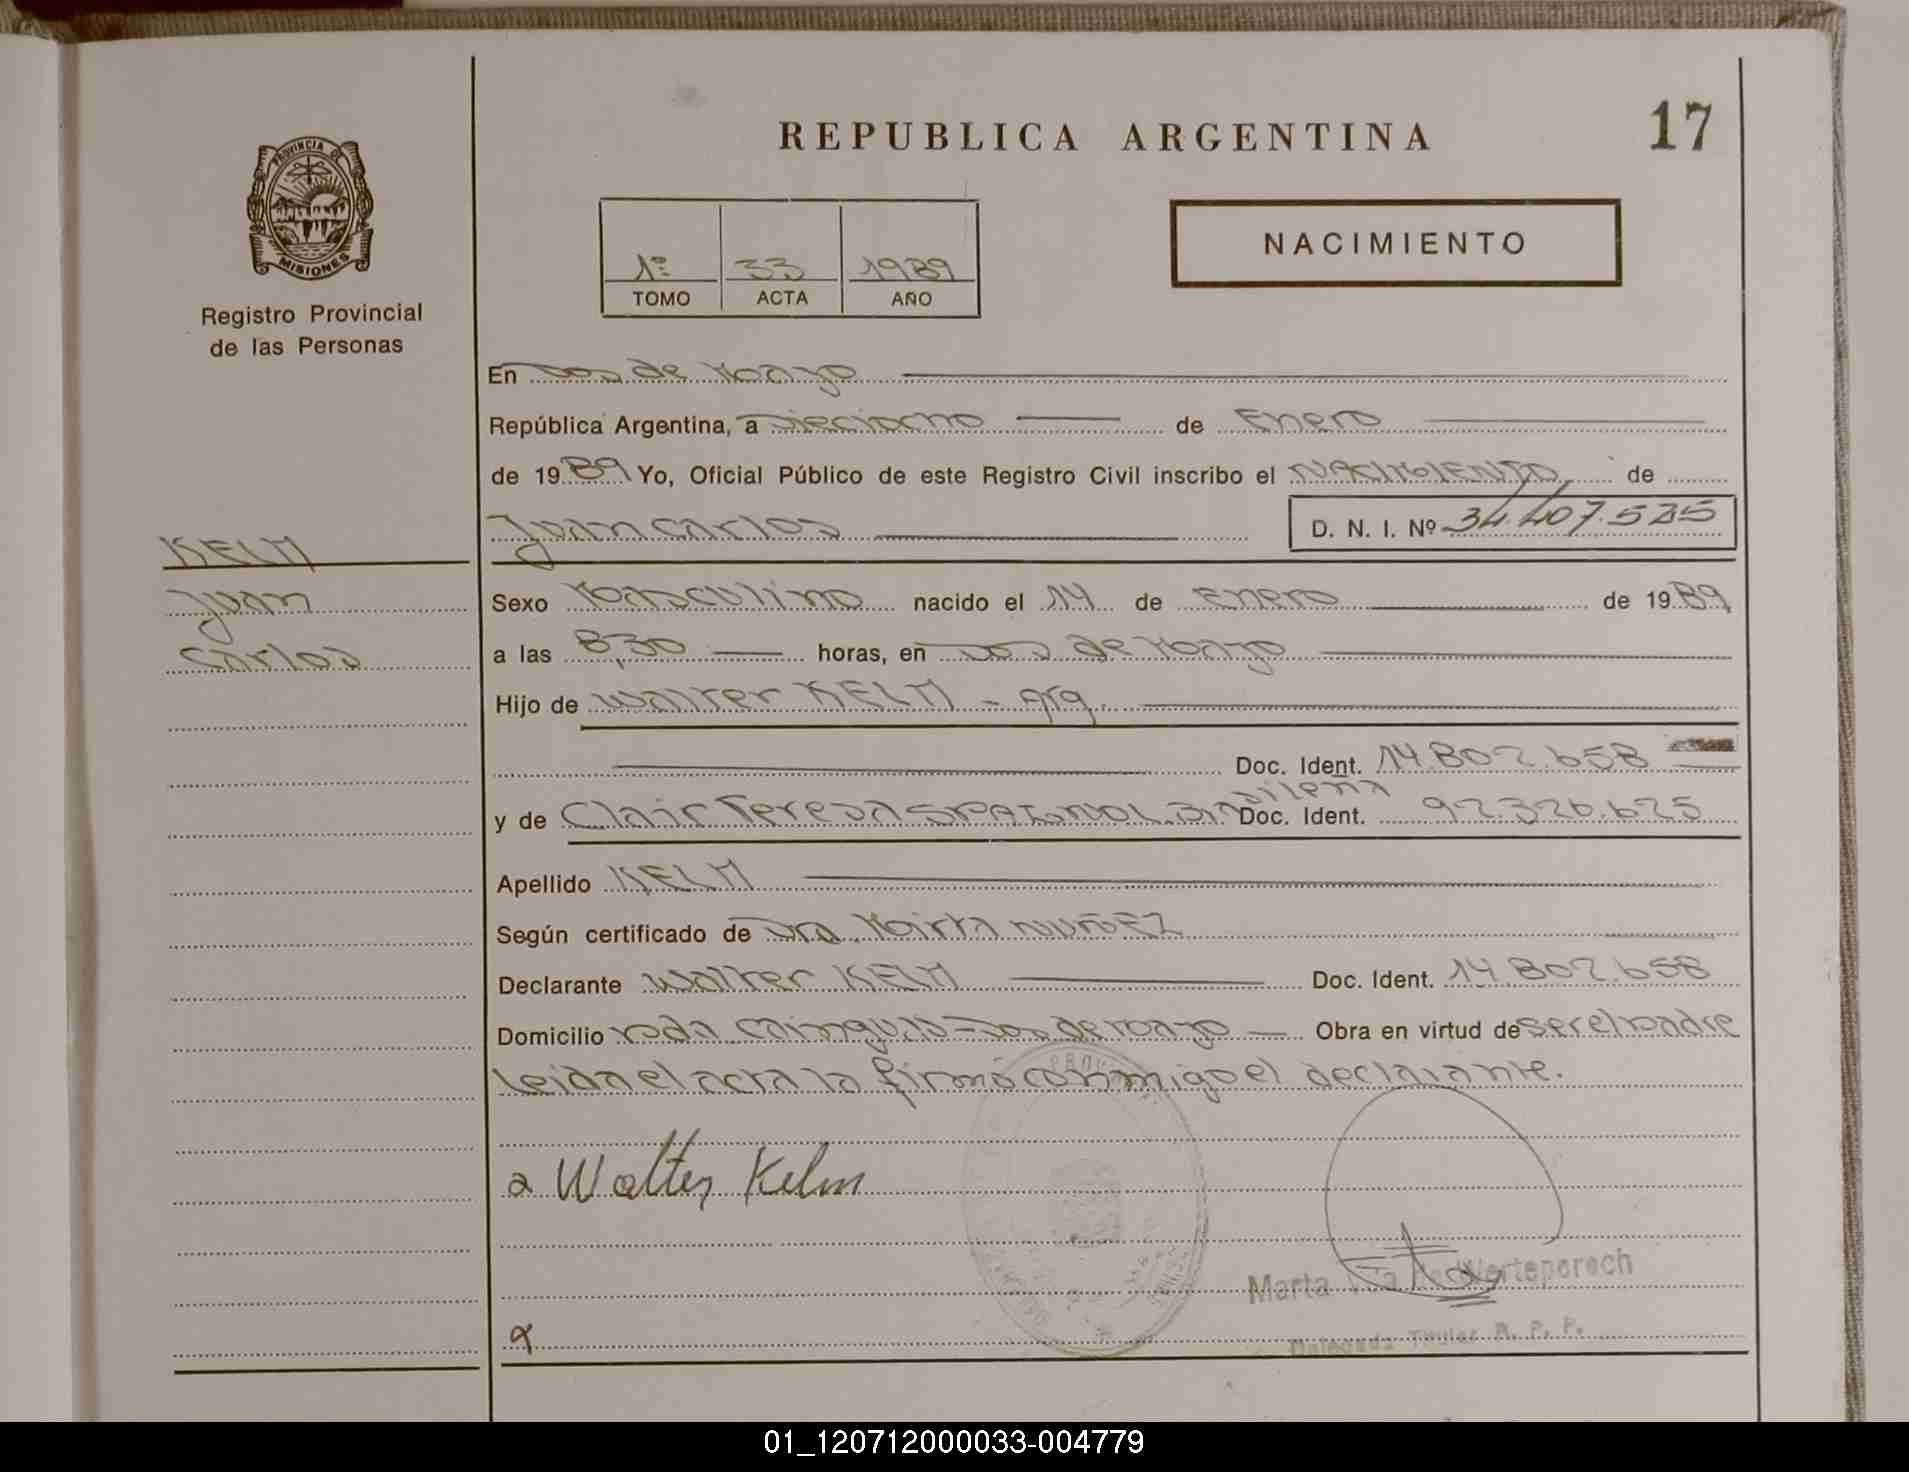 REPUBLICA ARGENTINA
17
PROVINCIA DE
MISIONES
Registro Provincial
de las Personas
NACIMIENTO
1º 33 1989
TOMO ACTA AÑO
En Dos de Mayo
República Argentina, a Dieciocho de Enero
de 1989 Yo, Oficial Público de este Registro Civil inscribo el NACIMIENTO de
Juan Carlos D. N. I. Nº 34.407.535
KELM
Juan
Carlos
Sexo Masculino nacido el 14 de Enero de 1989
a las 8,30 horas, en Dos de Mayo
Hijo de Walter KELM - Arg.
Doc. Ident. 14.802.658
y de Clair Teresa Brasileña Doc. Ident. 92.326.625
Apellido KELM
Según certificado de Dra. Mirta NUÑEZ
Declarante Walter KELM Doc. Ident. 14.802.658
Domicilio Dos de Mayo Obra en virtud de ser el padre
Leida el acta la firmó conmigo el declarante.
Walter Kelm
Marta Werteperech
Delegada Titular R. P. P.
01_120712000033-004779